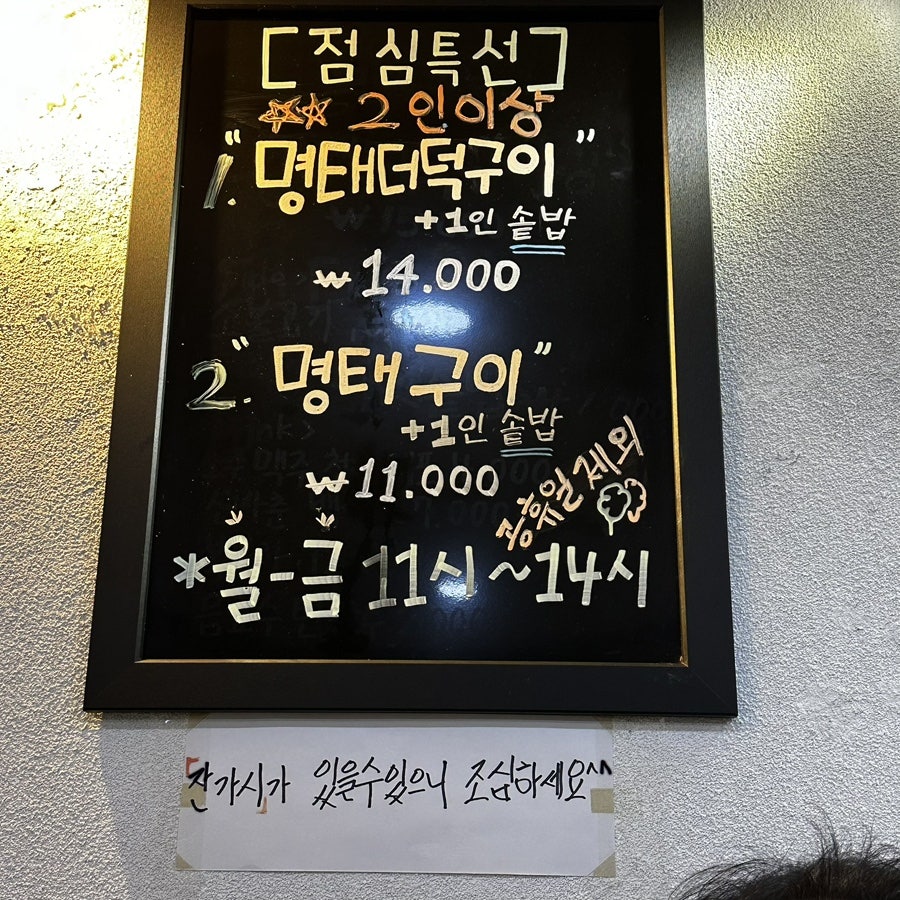 [점심특선]
2인이상
1. "명태더덕구이"
+1인 솥밥
₩14.000
2. "명태구이"
+1인 솥밥
₩11.000
공휴일제외
*월-금 11시~14시
잔가시가 있을수있으니 조심하세요^^